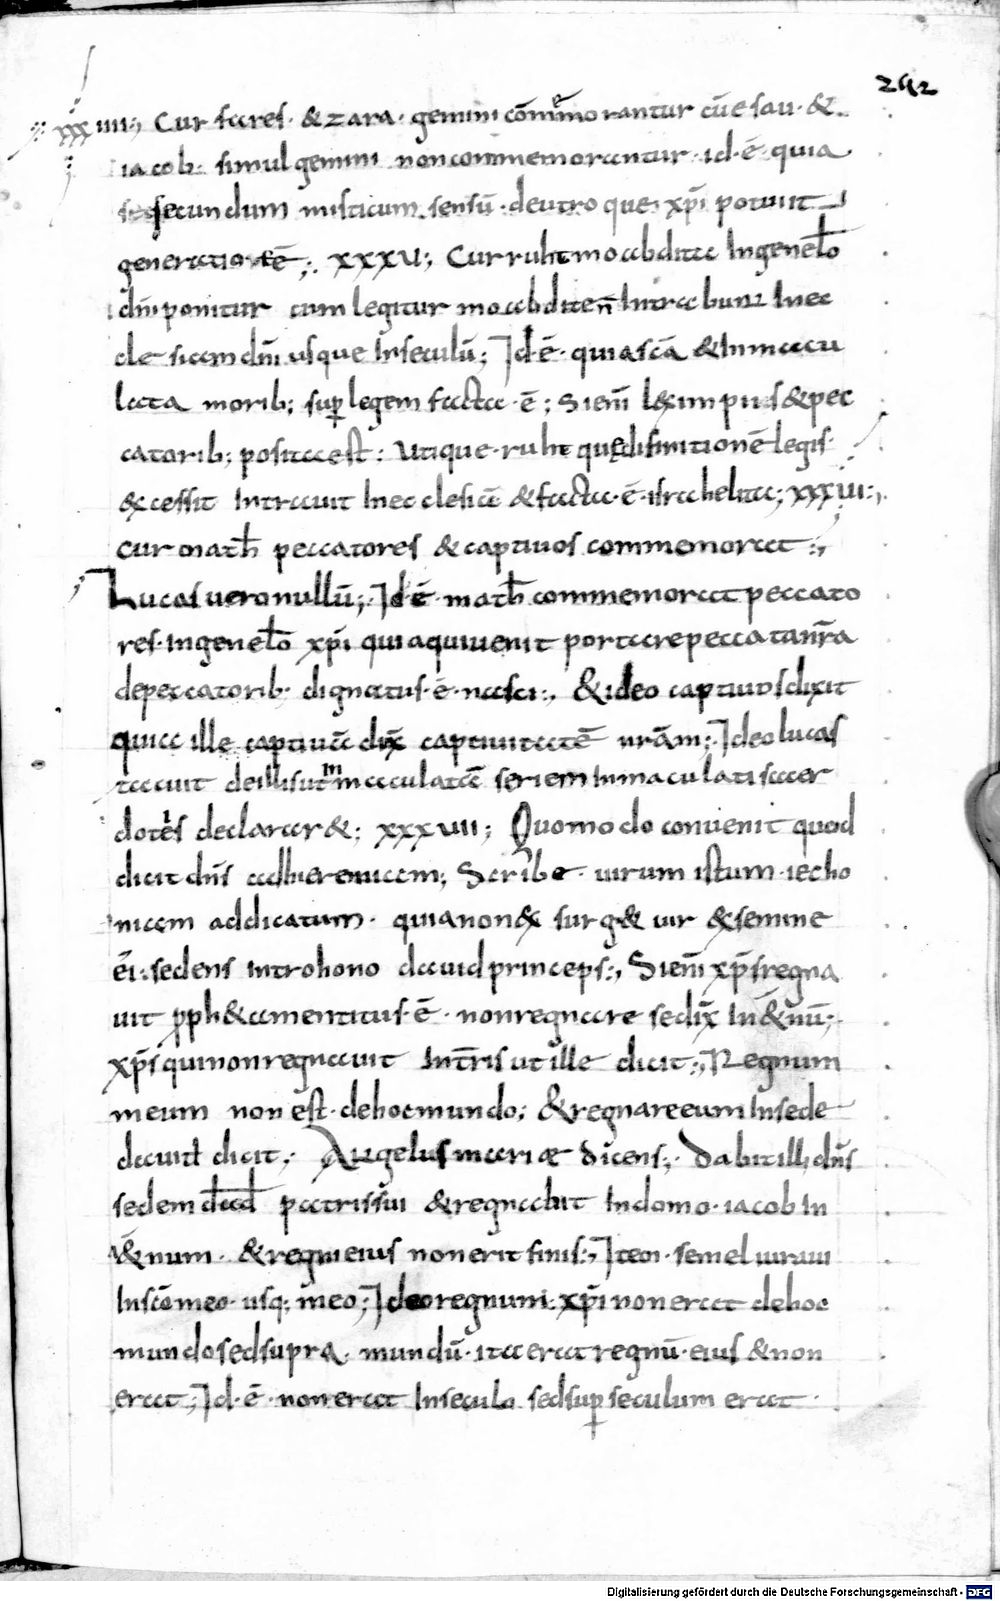 242
xxxiiii:, Cur fares · & zara · gemini cōmemorantur cū esau · &
iacob · simul gemini non commemorantur · id · ē · quia
secundum misticum sensū · de utroque · xp̄i potuit
generationē ;, xxxv ; Cur ruht moabditaa In genelō
dn̄i ponitur cum legitur moabditen̄ Intrabunt In ec
clesiam dn̄i usque In seculū ; Id · ē · quia sc̄a & Inmacu
lata morib ; sup̱ legem facta · ē ; Si enī lex impiis & pec
catorib ; posita est : Utique · ruht que difinitionē legis ·
excessit Intrauit In ecclesiā & facta · ē · israhelita ; xxxvi :,
Cur math̄ peccatores & captiuos commemorat :,
Lucas uero nullū ; Id · ē · math̄ commemorat peccato
res · In genelō xp̄i quia qui uenit portare peccata nr̄a
de peccatorib · dignatus · ē · nasci :, & ideo captiuos dixit
quia ille captiuā dux̄ captiuitatē nr̄am ; Ideo lucas
tacuit de illis ut Inmaculatā seriem Inmaculati sacer
dotis declarar& ; xxxvii ; Quomodo conuenit quod
dicit dn̄s ad hieremiam ; Scribe · uirum istum · iecho
niam abdicatum · quia non ex surg& uir ex semine
ei : sedens In trohono dauid princeps :, Si enī xp̄s regna
uit p̱ph&a mentitus · ē · non regnare se dix̄ In &nū ;
xp̄s qui non regnauit In tr̄is ut ille dicit :, Regnum
meum non est · de hoc mundo ; & regnare eum In sede
dauid dicit ; Angelus mariæ dicens ; Dabit illi dn̄s
sedem dad̄ patris sui & regnabit In domo · iacob In
&num · & regni eius non erit finis :, Item · semel iuraui
In sc̄o meo · usq ; meo ; Ideo regnum · xp̄i non erat de hoc
mundo sed supra · mundū · ita erat regnū · eius & non
erat ; Id · ē · non erat In seculo sed sup̱ seculum erat ·
Digitalisierung gefördert durch die Deutsche Forschungsgemeinschaft - DFG